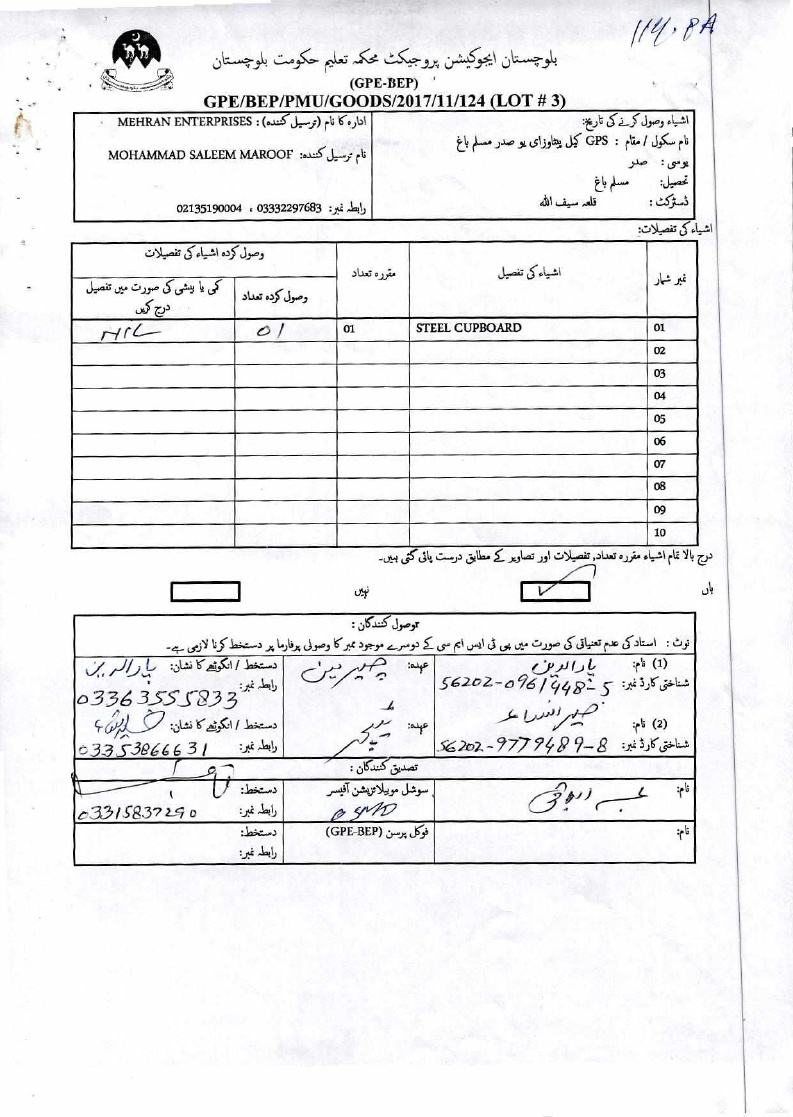 114.8A
بلوچستان ایجوکیشن پروجیکٹ محکمہ تعلیم حکومت بلوچستان
(GPE-BEP)
GPE/BEP/PMU/GOODS/2017/11/124 (LOT # 3)
اشیاء وصول کرنے کی تاریخ:
نام سکول / مقام : GPS کلی پنتاوزای یو صدر مسلم باغ
یوسی: صدر
تحصیل: مسلم باغ
ڈسٹرکٹ: قلعہ سیف اللہ
ادارہ کا نام (ترسیل کنندہ) : MEHRAN ENTERPRISES
نام ترسیل کنندہ: MOHAMMAD SALEEM MAROOF
رابطہ نمبر: 03332297683 ، 02135190004
اشیاء کی تفصیلات:
نمبر شمار اشیاء کی تفصیل مقررہ تعداد وصول کردہ اشیاء کی تفصیلات
وصول کردہ تعداد کمی یا بیشی کی صورت میں تفصیل درج کریں
01 STEEL CUPBOARD 01 01 NIL
02
03
04
05
06
07
08
09
10
درج بالا تمام اشیاء مقررہ تعداد, تفصیلات اور تصاویر کے مطابق درست پائی گئی ہیں۔
ہاں ✓ نہیں
وصول کنندگان :
نوٹ : استاد کی عدم تعیناتی کی صورت میں پی ٹی ایس ایم سی کے دوسرے موجود ممبر کا وصولی پروفارما پر دستخط کرنا لازمی ہے۔
(1) نام: عہدہ: چیئرمین دستخط / انگوٹھے کا نشان:
شناختی کارڈ نمبر: 56202-0961448-5 رابطہ نمبر: 03363555833
(2) نام: عہدہ: دستخط / انگوٹھے کا نشان:
شناختی کارڈ نمبر: 56202-9779489-8 رابطہ نمبر: 03353866631
تصدیق کنندگان :
نام: سوشل موبیلائزیشن آفیسر دستخط:
رابطہ نمبر: 03315837290
نام: فوکل پرسن (GPE-BEP) دستخط:
رابطہ نمبر: